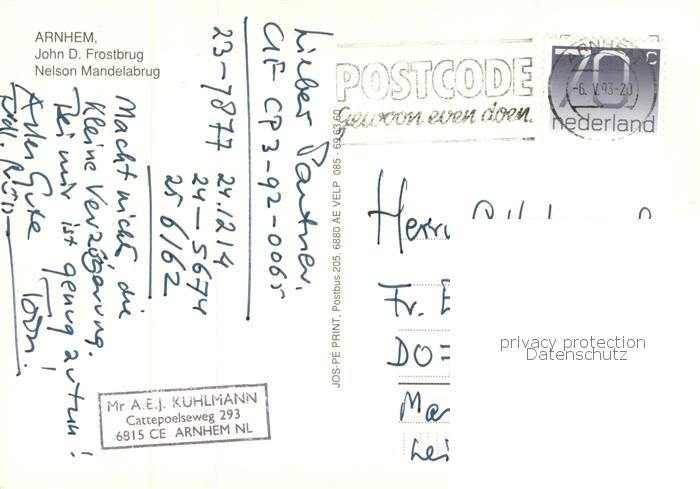 ARNHEM,
John D. Frostbrug
Nelson Mandelabrug
Lieber Partner,
CP3-92-0065
23-7877 24.1214
24-5674
25 6162
Macht nicht, die
kleine Verzögerung.
Bei mir ist genug zu tun!
Alles Gute
JOS-PÉ PRINT, Postbus 205, 6880 AE VELP 085 - 63 63 60
POSTCODE
gewoon even doen.
ARNHEM
-6. V.93-20
70 c
nederland
Herrn
Fr.
DO=
Ma
Lei
privacy protection
Datenschutz
Mr A.E.J. KUHLMANN
Cattepoelseweg 293
6815 CE ARNHEM NL